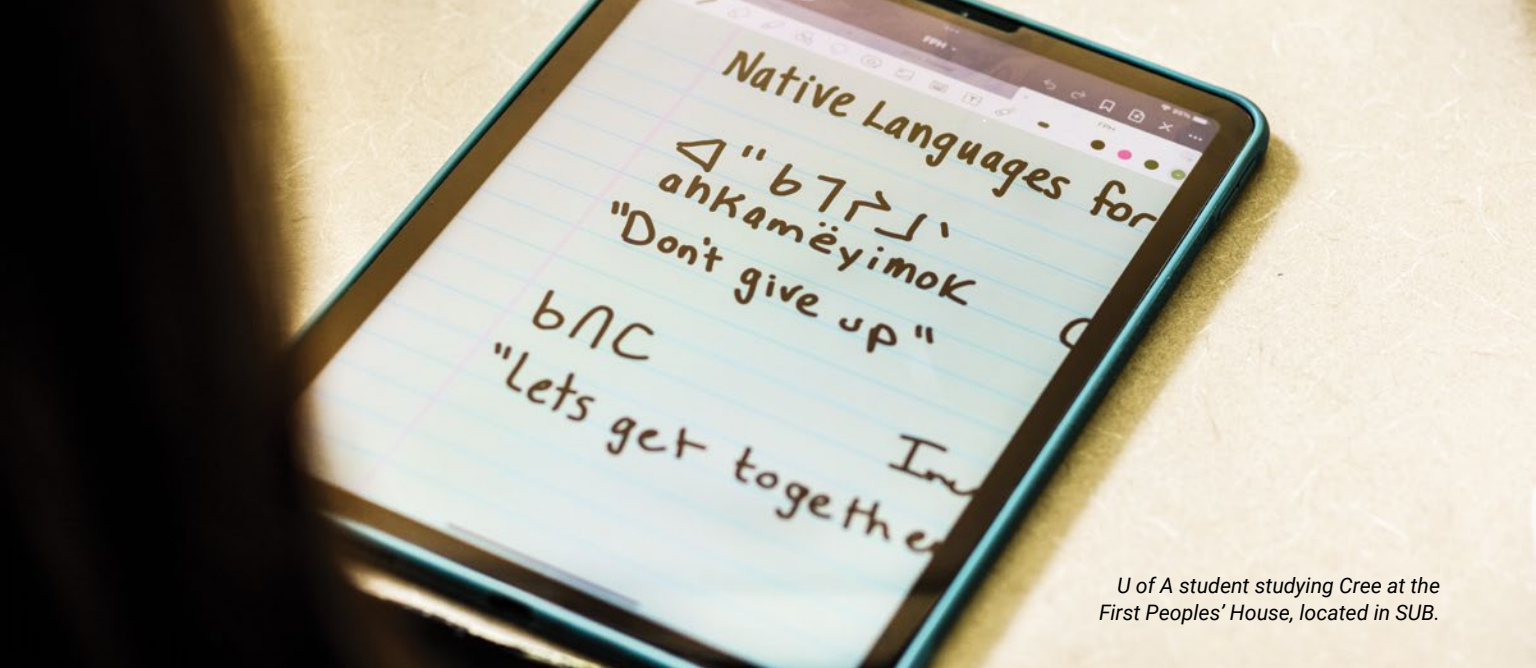 FPH
Native Languages for
ᐊᐦᑲᒣᔨᒧᐠ
ahkamëyimok
"Don't give up"
ᑲᑎᑕ
"Lets get
U of A student studying Cree at the
First Peoples' House, located in SUB.